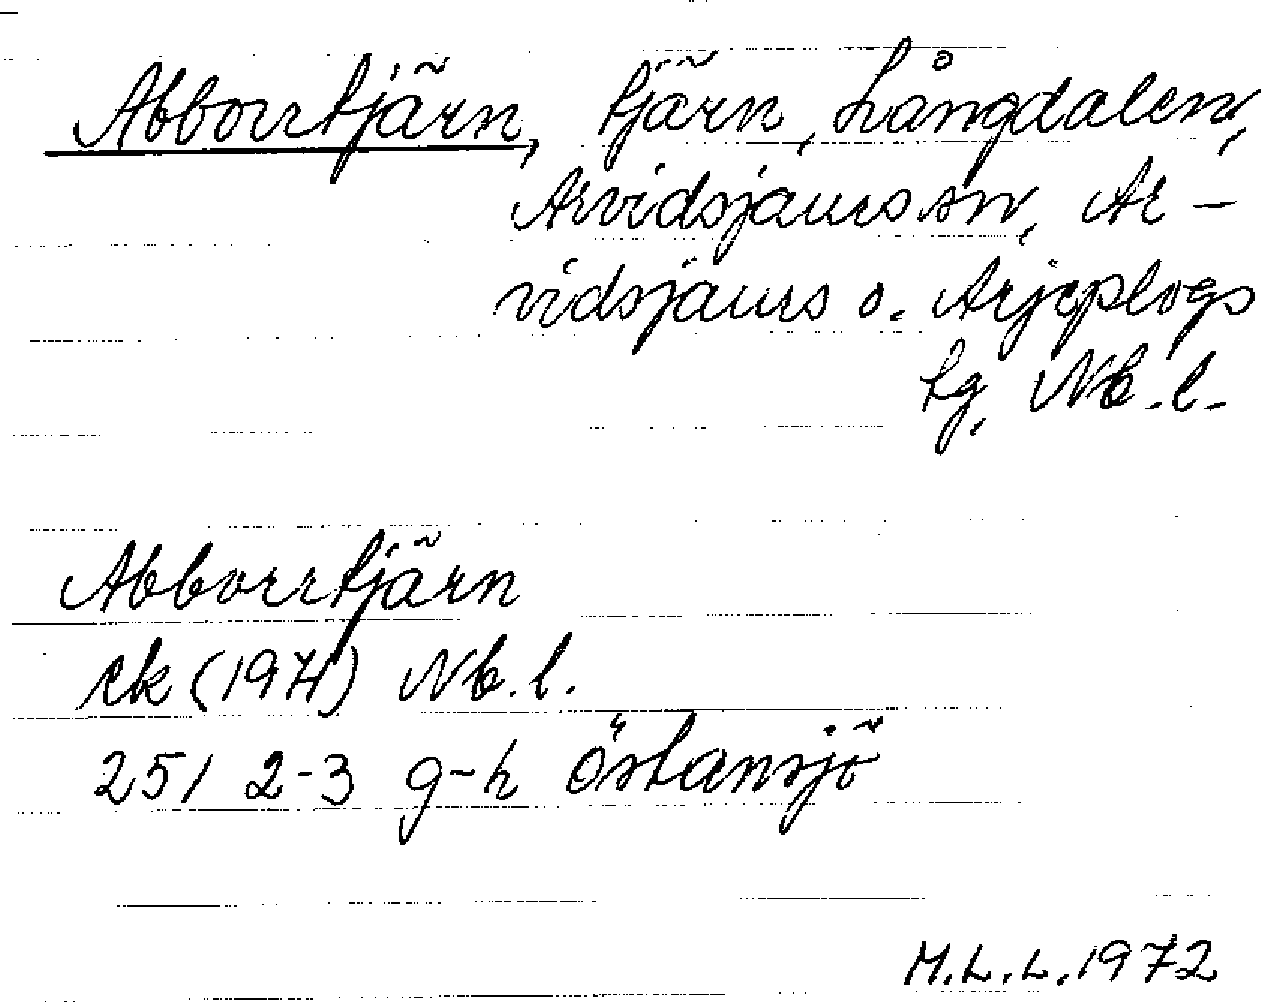 Abborrtjärn, tjärn, Långdalen,
Arvidsjaurs sn, Ar-
vidsjaurs o. Arjeplogs
tg, Nb.l.
Abborrtjärn
ek (1971) Nb.l.
251 2-3 g-h Östansjö
M.L.L.1972